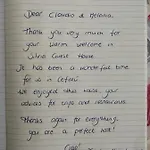 Dear Claudio & Helena,
Thank you very much for
your warm welcome in
Guest House
It has been a wonderful time
for us in
We enjoyed this house, your
advices for cafe and restaurants.
Thanks again for everything,
you are a perfect host!